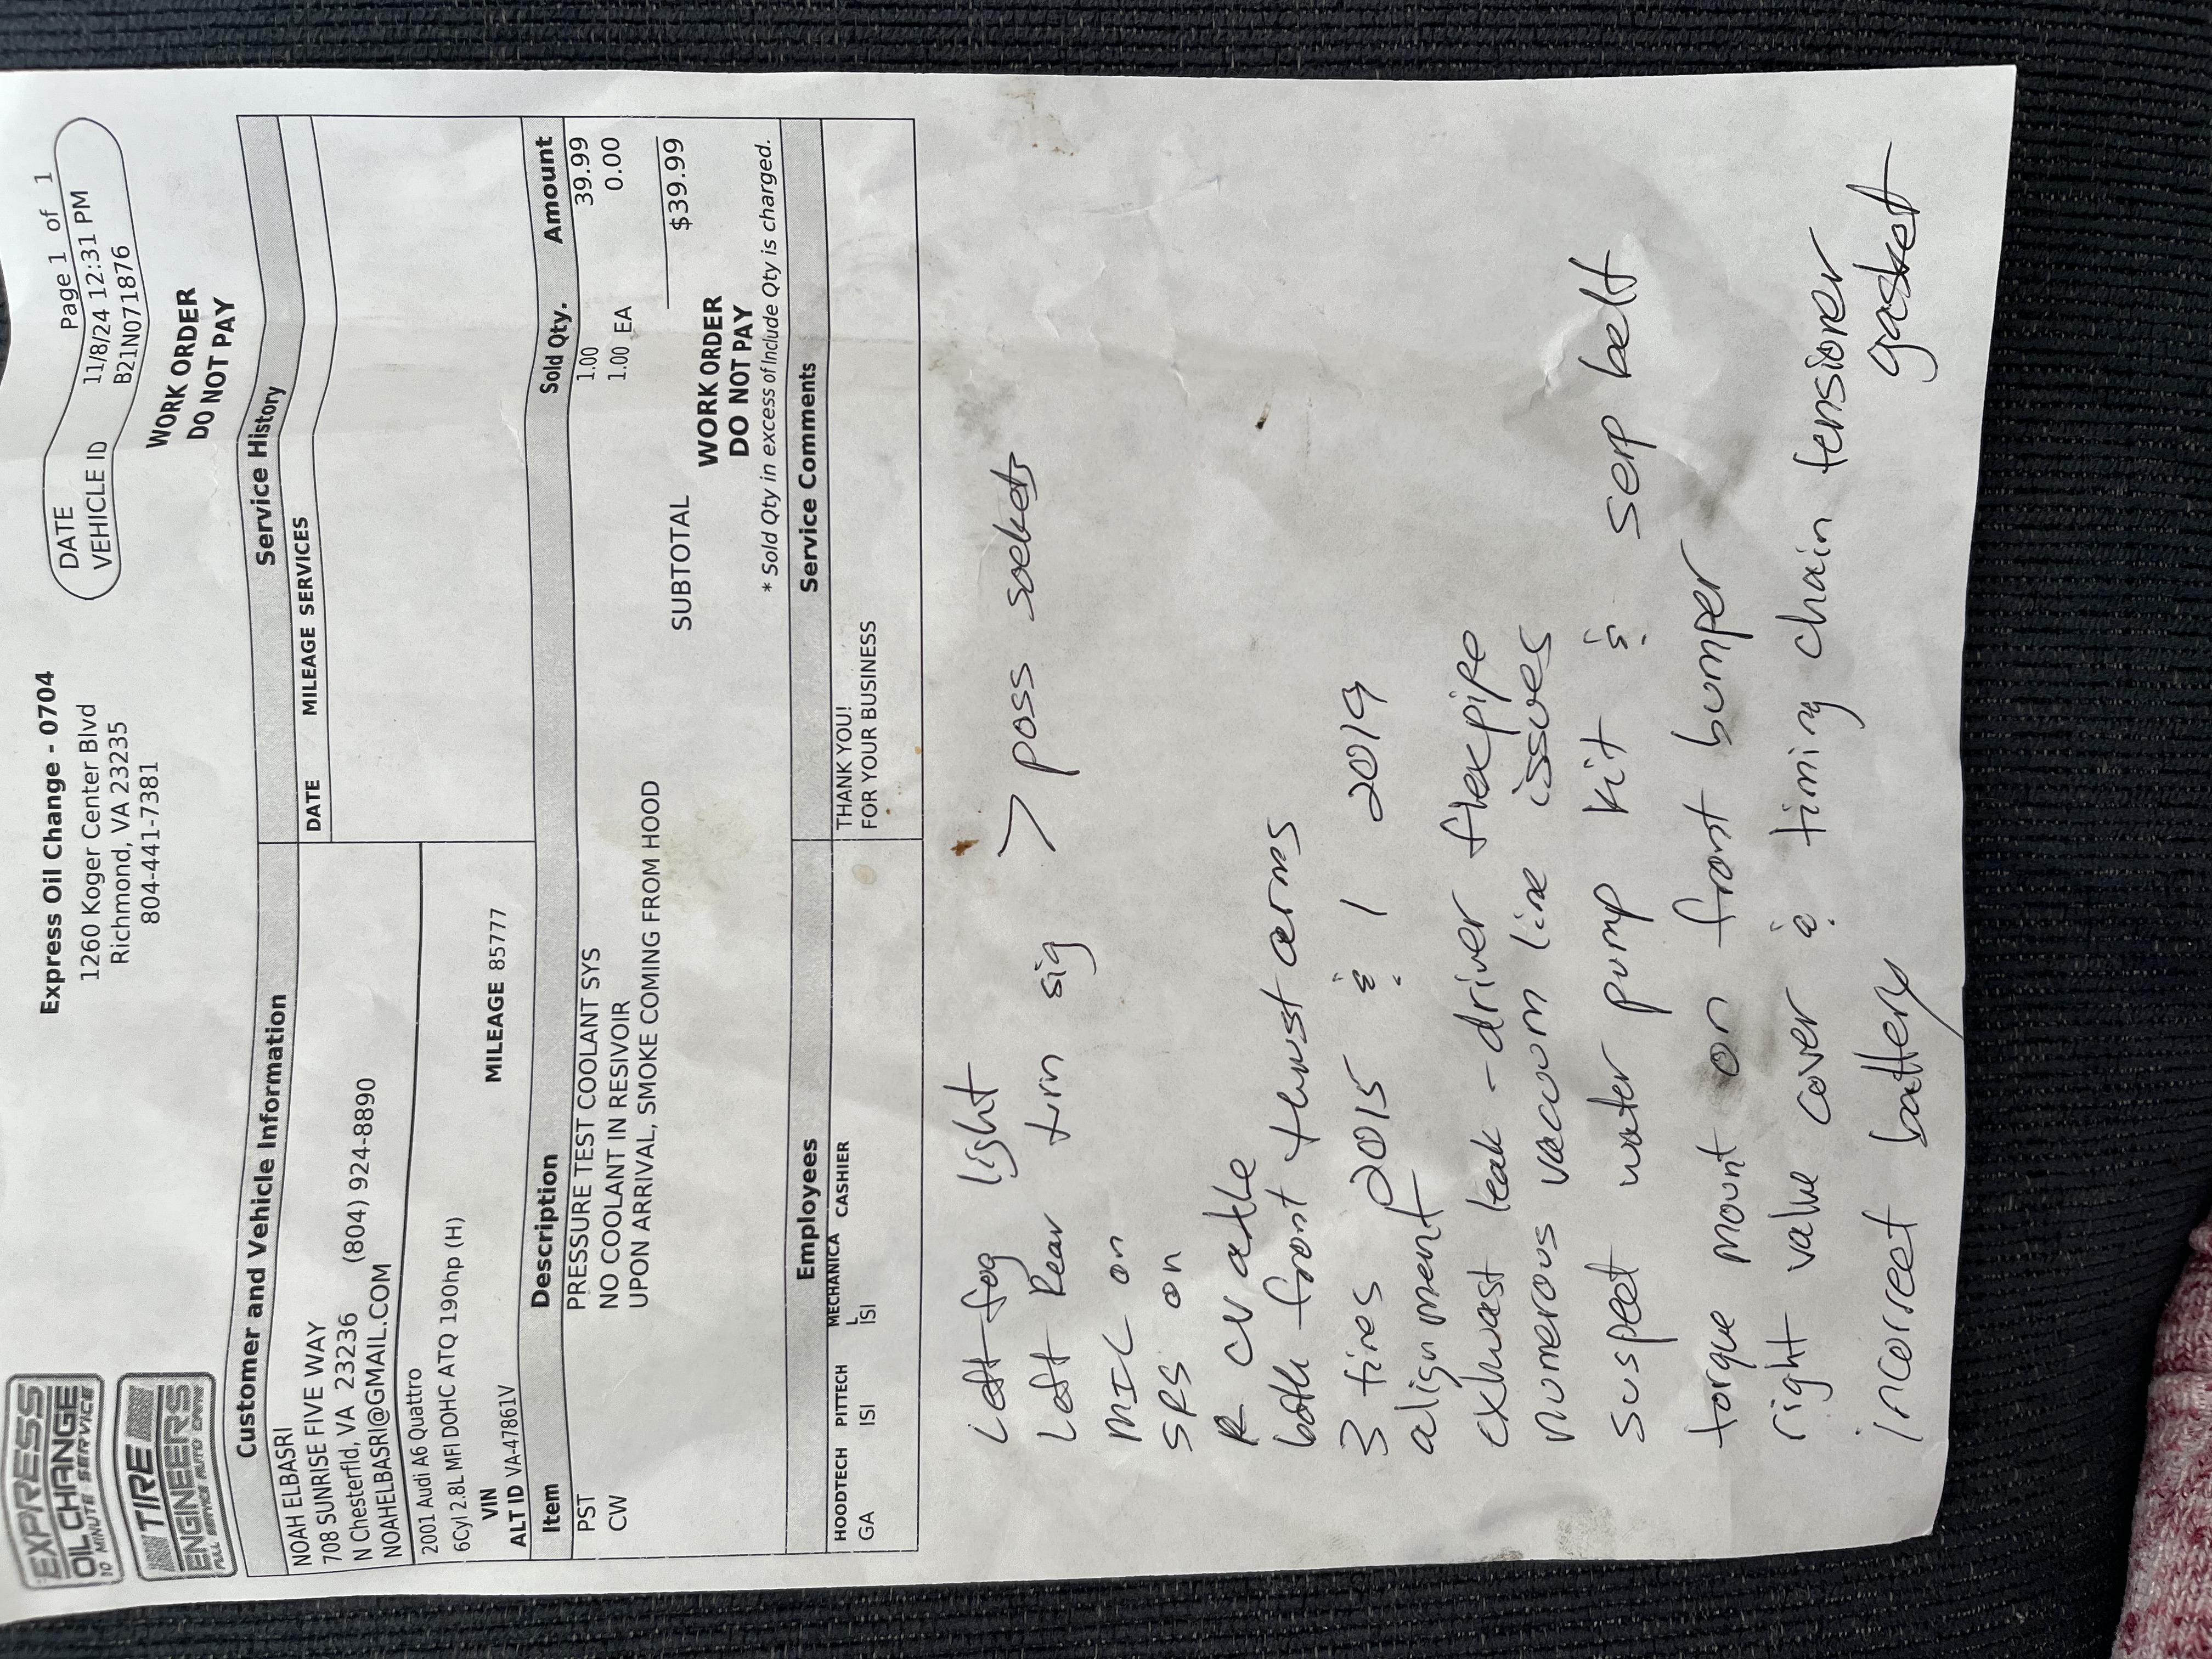 EXPRESS
OIL CHANGE
10 MINUTE SERVICE
TIRE
ENGINEERS
FULL SERVICE AUTO CARE
Express Oil Change - 0704
1260 Koger Center Blvd
Richmond, VA 23235
804-441-7381
Page 1 of 1
DATE 11/8/24 12:31 PM
VEHICLE ID B21N071876
WORK ORDER
DO NOT PAY
Customer and Vehicle Information
NOAH ELBASRI
708 SUNRISE FIVE WAY
N Chesterfld, VA 23236 (804) 924-8890
NOAHELBASRI@GMAIL.COM
2001 Audi A6 Quattro
6Cyl 2.8L MFI DOHC ATQ 190hp (H)
VIN MILEAGE 85777
ALT ID VA-47861V
Service History
DATE MILEAGE SERVICES
Item Description Sold Qty. Amount
PST PRESSURE TEST COOLANT SYS 1.00 39.99
CW NO COOLANT IN RESIVOIR 1.00 EA 0.00
UPON ARRIVAL, SMOKE COMING FROM HOOD
SUBTOTAL $39.99
WORK ORDER
DO NOT PAY
* Sold Qty in excess of Include Qty is charged.
Employees Service Comments
HOODTECH PITTECH MECHANICA L CASHIER
GA ISI ISI
THANK YOU!
FOR YOUR BUSINESS
Left fog light
Left Rear turn sig > poss sockets
MIL on
SRS on
R CV axle
both front thrust arms
3 tires 2015 & 1 2019
alignment
exhuast leak - driver flexpipe
numerous vacuum line issues
suspect water pump kit & serp belt
torque mount on front bumper
right valve cover & timing chain tensioner
gasket
incorrect battery